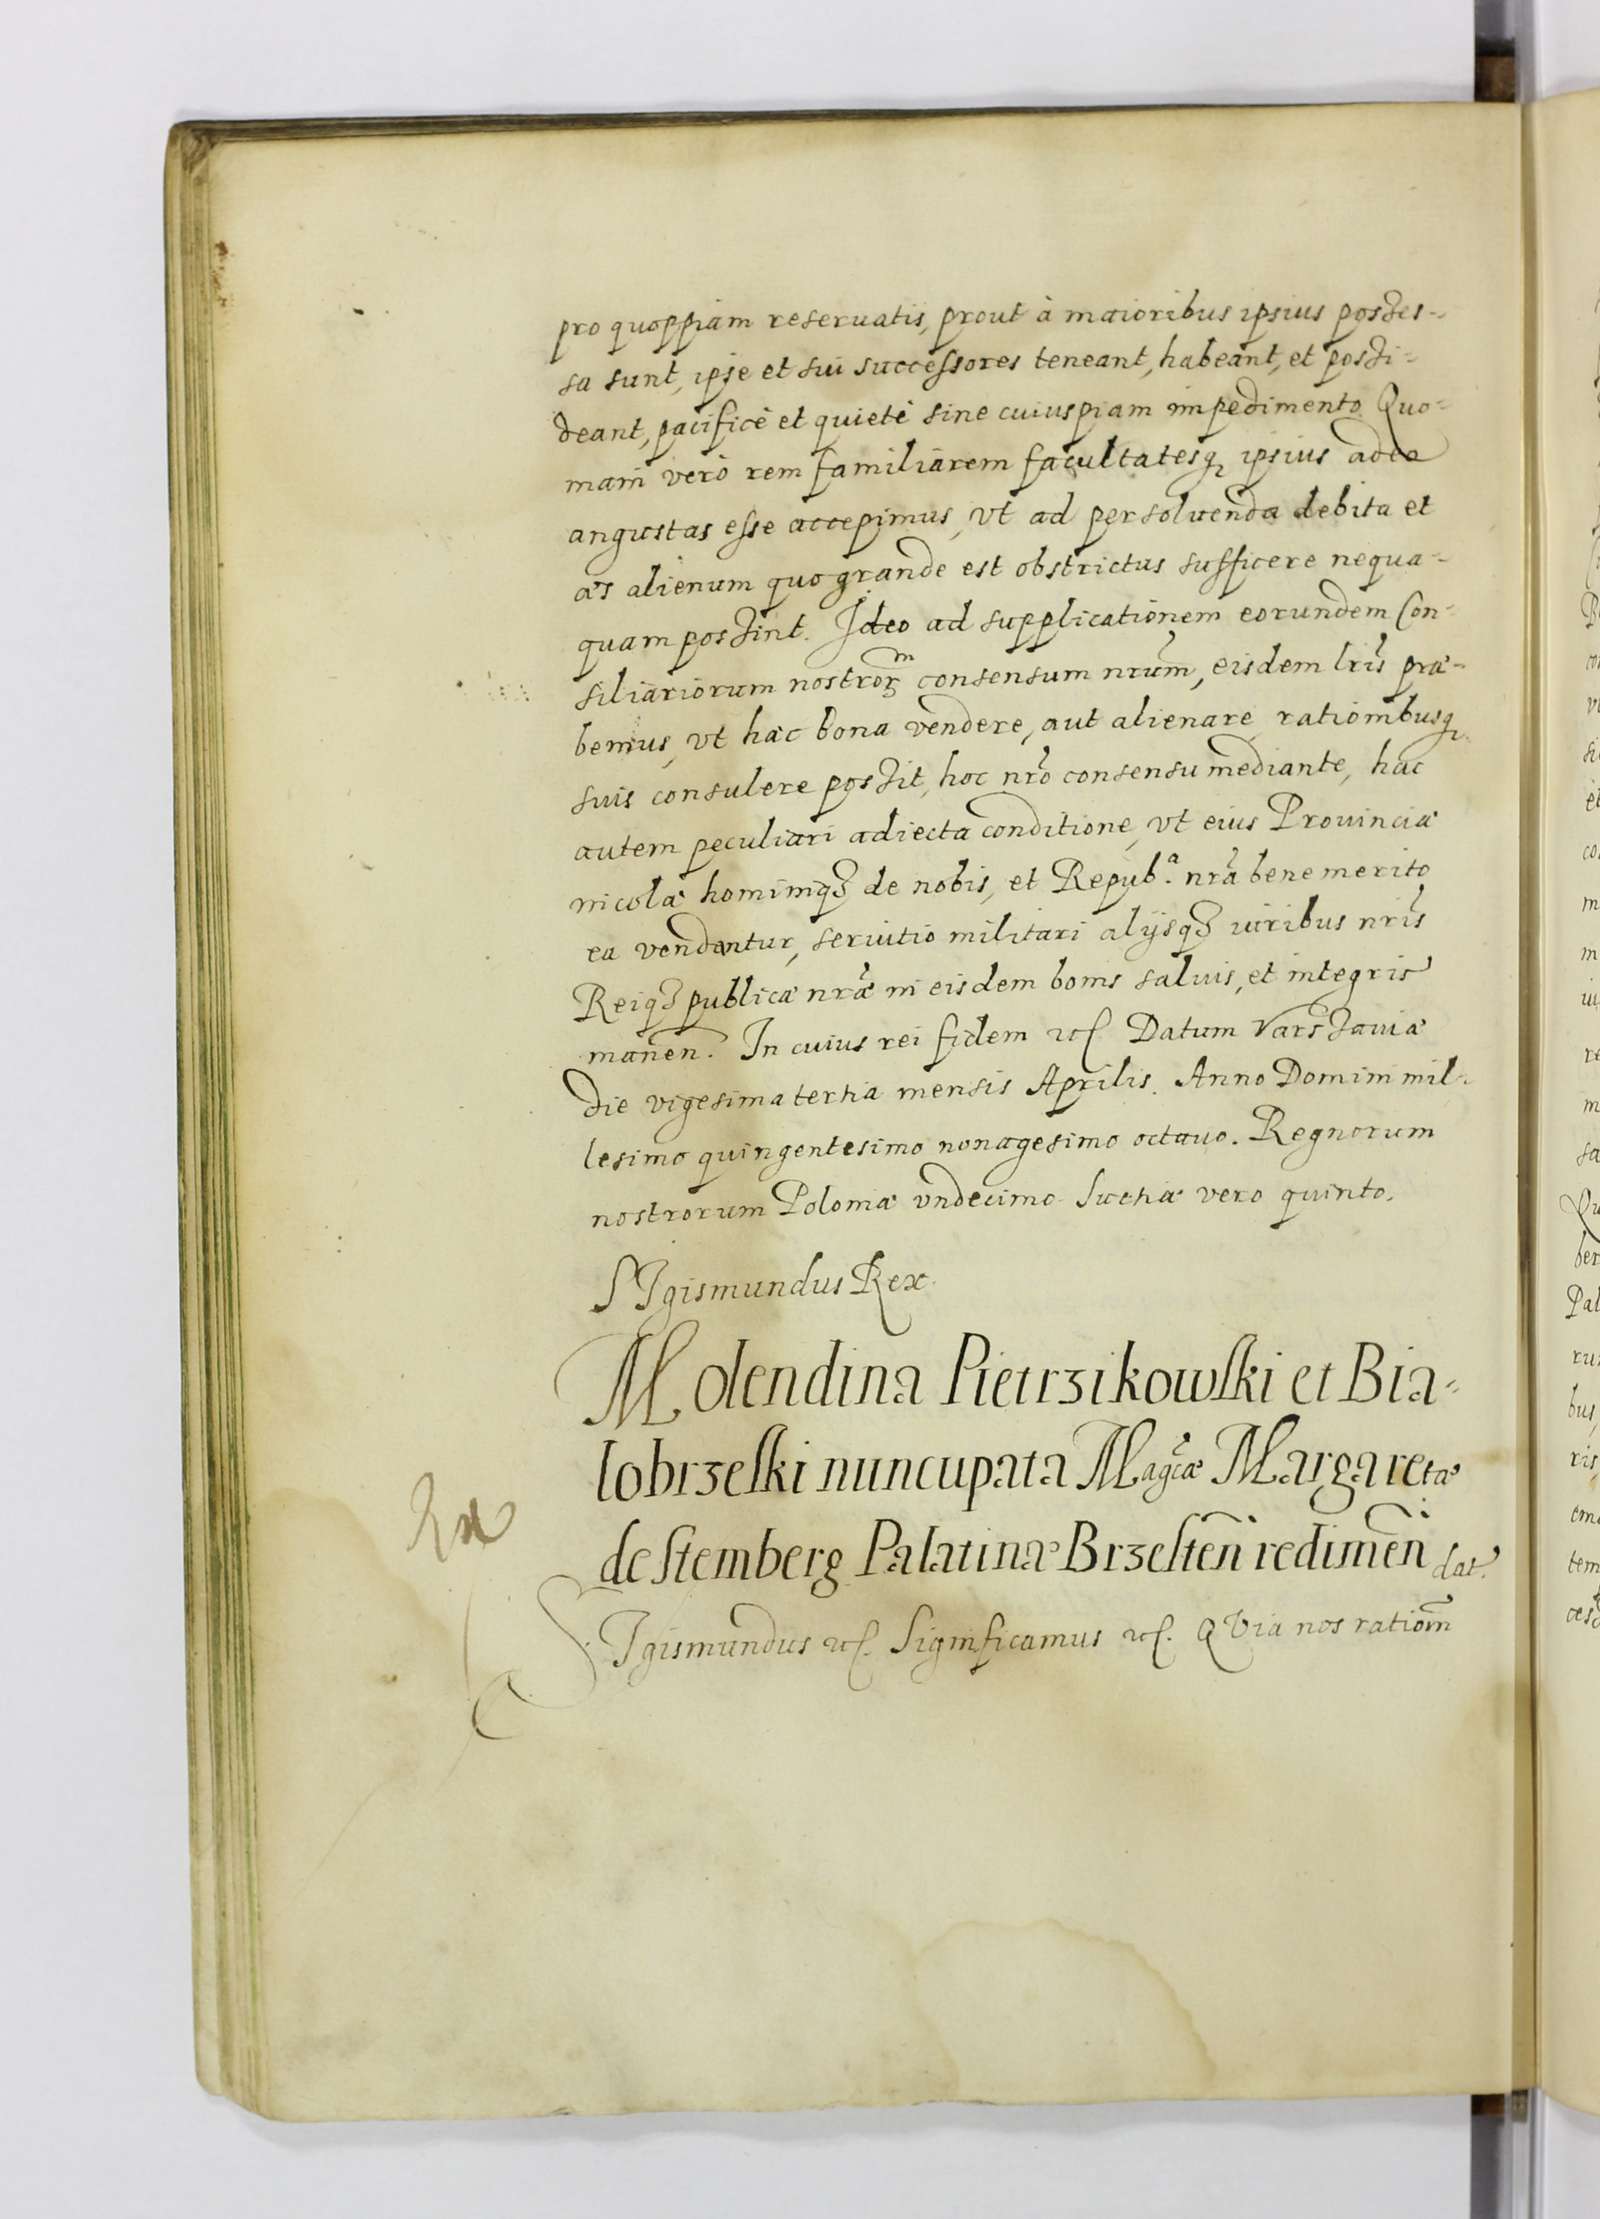 pro quoppiam reseruatis, prout à maioribus ipsius posses-
sa sunt, ipse et sui successores teneant, habeant, et possi-
deant, pacificè et quietè sine cuiuspiam impedimento. Quo-
niam verò rem familiarem facultatesq, ipsius adeo
angustas esse accepimus, vt ad persoluenda debita et
æs alienum quo grande est obstrictus sufficere nequa-
quam possint. Ideo ad supplicationem eorundem Con-
siliariorum nostror consensum nrum, eisdem lris præ-
bemus, vt hæc bona vendere, aut alienare, rationibusq,
suis consulere possit, hoc nro consensu mediante, hac
autem peculiari adiecta conditione, vt eius Prouinciæ
incolæ hominiq3 de nobis, et Repub.a nra bene merito
ea vendantur, seruitio militari alijsq3 iuribus nris
Reiq3 publicæ nræ in eisdem bonis saluis, et integris
manen. In cuius rei fidem etc Datum Varssauiæ
die vigesima tertia mensis Aprilis. Anno Domini mil-
lesimo quingentesimo nonagesimo octauo. Regnorum
nostrorum Poloniæ vndecimo Suetiæ vero quinto.
SIgismundus Rex.
Molendina Pietrzikowski et Bia-
lobrzeski nuncupata Magcæ Margaretæ
de Stemberg Palatinæ Brzesten redimen dat.
SIgismundus etc. Significamus etc. QVia nos rationm